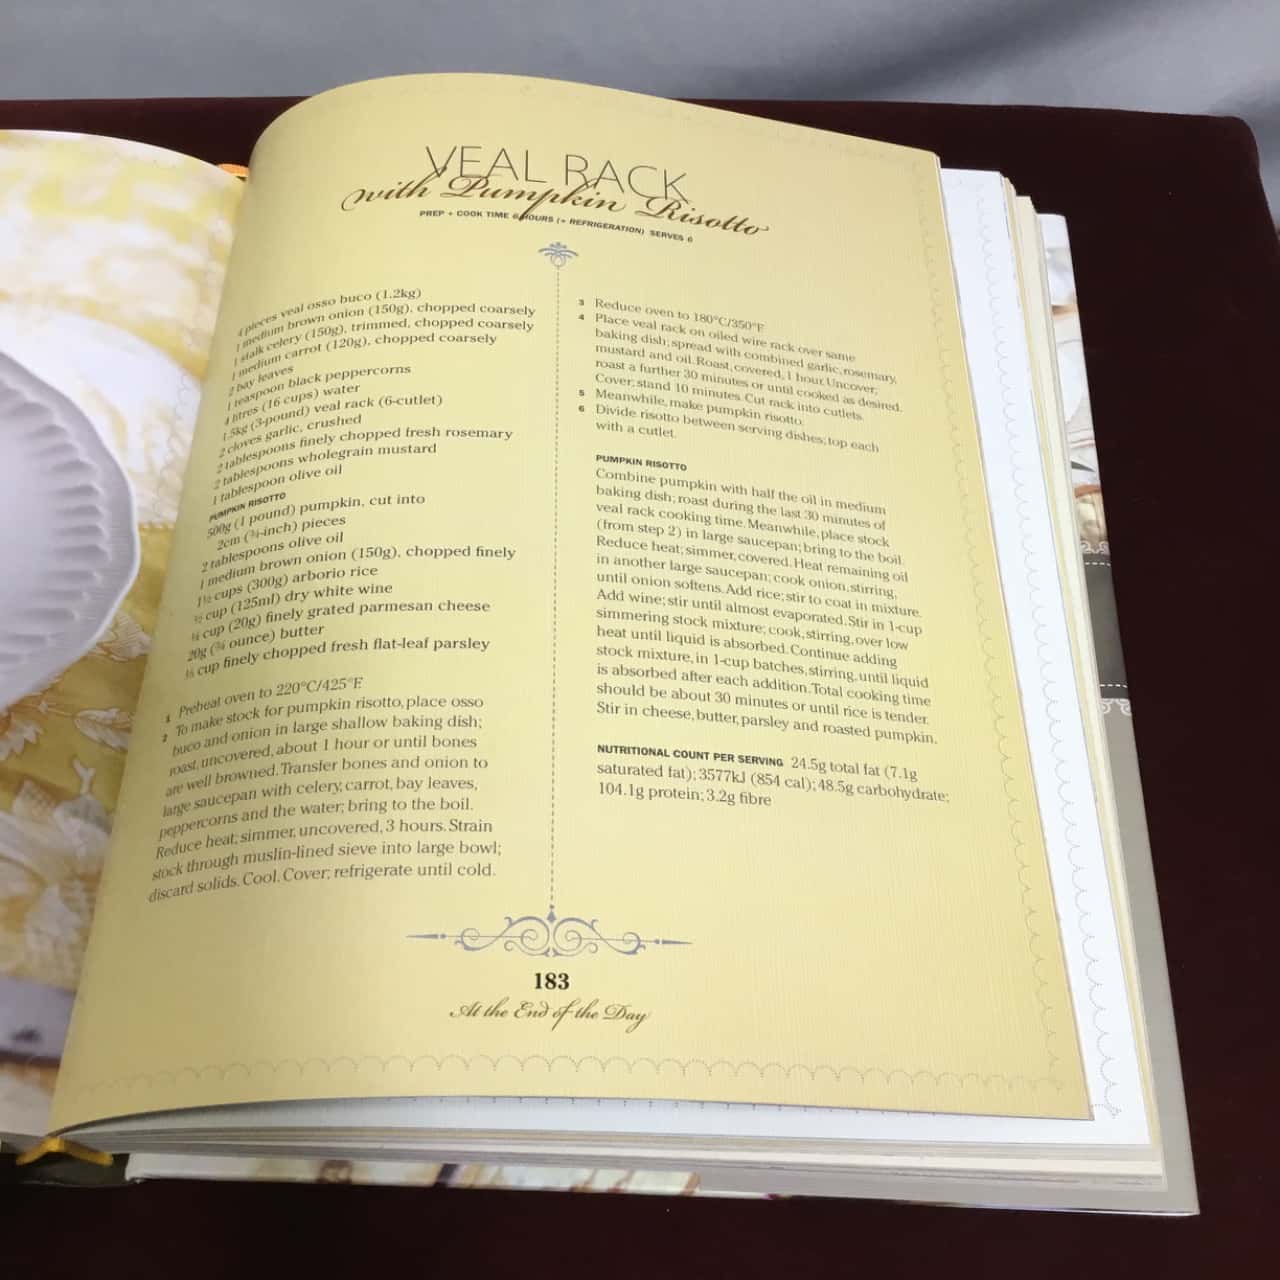 VEAL RACK
with Pumpkin Risotto
PREP + COOK TIME 6 HOURS (+ REFRIGERATION) SERVES 6
4 pieces veal osso buco (1.2kg)
1 medium brown onion (150g), chopped coarsely
1 stalk celery (150g), trimmed, chopped coarsely
1 medium carrot (120g), chopped coarsely
2 bay leaves
1 teaspoon black peppercorns
4 litres (16 cups) water
1.5kg (3-pound) veal rack (6-cutlet)
2 cloves garlic, crushed
2 tablespoons finely chopped fresh rosemary
2 tablespoons wholegrain mustard
1 tablespoon olive oil
PUMPKIN RISOTTO
500g (1 pound) pumpkin, cut into
2cm (¾-inch) pieces
2 tablespoons olive oil
1 medium brown onion (150g), chopped finely
1½ cups (300g) arborio rice
½ cup (125ml) dry white wine
¼ cup (20g) finely grated parmesan cheese
20g (¾ ounce) butter
cup finely chopped fresh flat-leaf parsley
1 Preheat oven to 220°C/425°F.
2 To make stock for pumpkin risotto, place osso
buco and onion in large shallow baking dish;
roast, uncovered, about 1 hour or until bones
are well browned. Transfer bones and onion to
large saucepan with celery, carrot, bay leaves,
peppercorns and the water; bring to the boil.
Reduce heat; simmer, uncovered, 3 hours. Strain
stock through muslin-lined sieve into large bowl;
discard solids. Cool. Cover; refrigerate until cold.
3 Reduce oven to 180°C/350°F.
4 Place veal rack on oiled wire rack over same
baking dish; spread with combined garlic, rosemary,
mustard and oil. Roast, covered, 1 hour. Uncover;
roast a further 30 minutes or until cooked as desired.
Cover; stand 10 minutes. Cut rack into cutlets.
5 Meanwhile, make pumpkin risotto.
6 Divide risotto between serving dishes; top each
with a cutlet.
PUMPKIN RISOTTO
Combine pumpkin with half the oil in medium
baking dish; roast during the last 30 minutes of
veal rack cooking time. Meanwhile, place stock
(from step 2) in large saucepan; bring to the boil.
Reduce heat; simmer, covered. Heat remaining oil
in another large saucepan; cook onion, stirring,
until onion softens. Add rice; stir to coat in mixture.
Add wine; stir until almost evaporated. Stir in 1-cup
simmering stock mixture; cook, stirring, over low
heat until liquid is absorbed. Continue adding
stock mixture, in 1-cup batches, stirring, until liquid
is absorbed after each addition. Total cooking time
should be about 30 minutes or until rice is tender.
Stir in cheese, butter, parsley and roasted pumpkin.
NUTRITIONAL COUNT PER SERVING 24.5g total fat (7.1g
saturated fat); 3577kJ (854 cal); 48.5g carbohydrate;
104.1g protein; 3.2g fibre
183
At the End of the Day